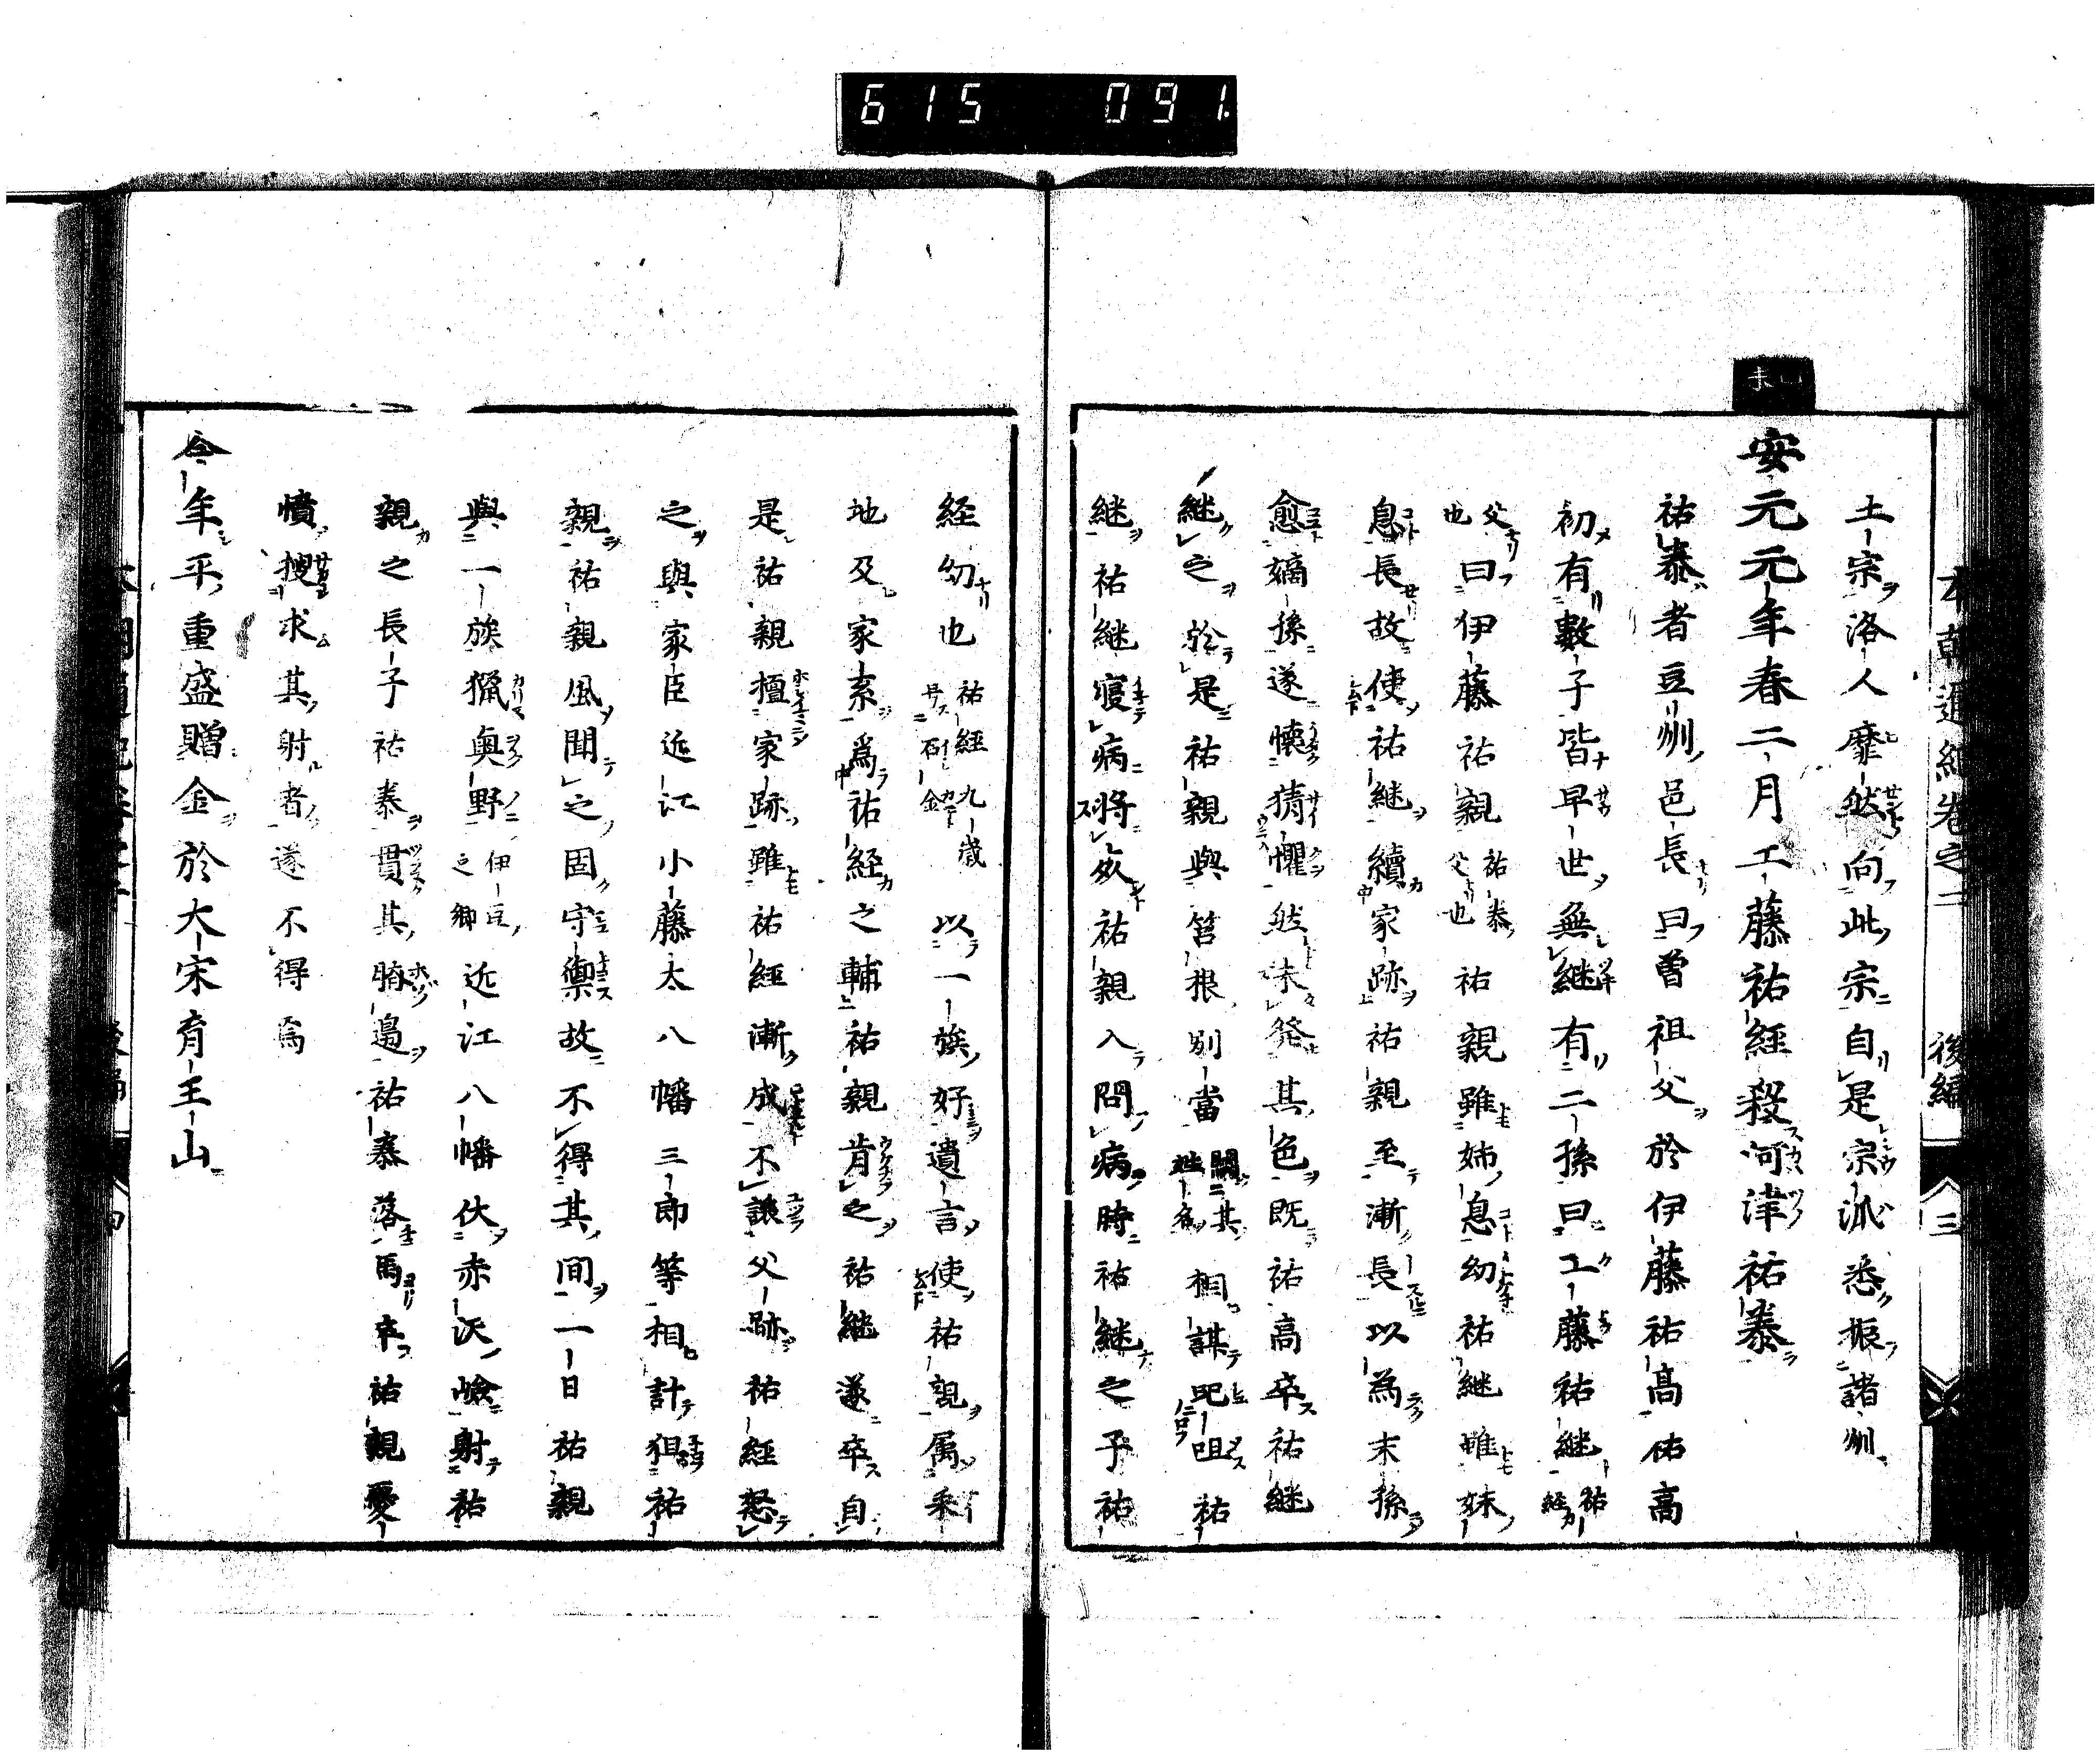 615 091.
本朝通紀卷之二 後編 三
未
土宗洛人靡然向此宗自是宗派悉振諸州
安元元年春二月工藤祐經殺河津祐泰
祐泰者豆州邑長曰曽祖父於伊藤祐高祐高
初有數子皆早世無継有二孫曰工藤祐継祐経
父也曰伊藤祐親祐泰父也祐親雖姉息幼祐継雖妹
息長故使祐継續家跡祐親至漸長以為末孫
愈嫡孫遂懐猜懼然未發其色既祐高卒祐継
継之於是祐親與筥根別當闕其姓名相謀呪咀祐
継祐継寝病將歿祐親入問病時祐継之子祐
経幼也祐経九歳号石金以一族好遺言使祐親属釆
地及家系為祐経之輔祐親肯之祐継遂卒自
是祐親擅家跡雖祐經漸成不讓父跡祐經怒
之與家臣近江小藤太八幡三郎等相計狙祐
親祐親風聞之固守禦故不得其間一日祐親
與一族猟奥野伊豆之郷近江八幡伏赤沢嶮射祐
親之長子祐泰貫其腨邉祐泰落馬卒祐親憂
憤搜求其射者遂不得焉
今年平重盛贈金於大宋育王山